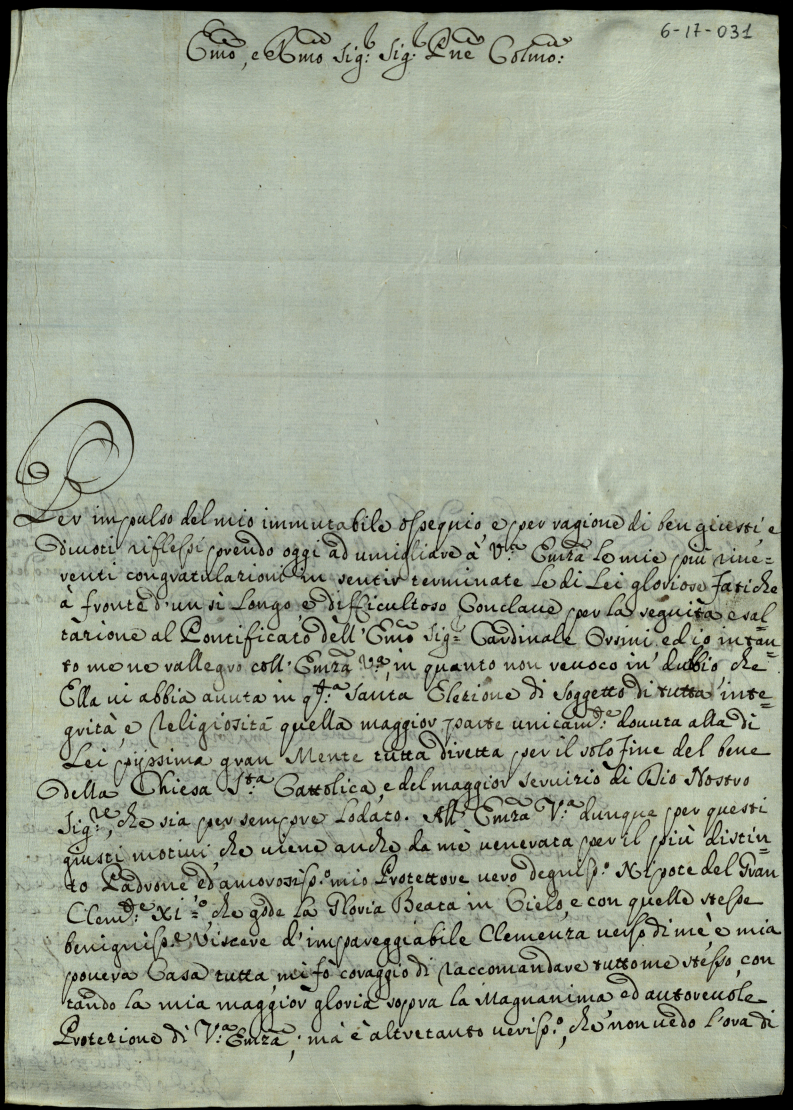 6-17-031
Emo, e Rmo Sig.r Sig.r Pne Colmo:
Per impulso del mio immutabile ossequio e per ragione di ben giusti e
divoti riflessi prendo oggi ad umigliare à V.ra Emza le mie più rive=
renti congratulazioni in sentir terminate le di Lei gloriose fatiche
à fronte d'un sì Longo, e difficultoso Conclave per la seguita esal
tazione al Pontificato dell'Emo Sig.r Cardinale Orsini, ed io intan=
to me ne rallegro coll'Emza V.ra, in quanto non revoco in dubbio che
Ella vi abbia avuta in q.ta Santa Elezione di Soggetto di tutta inte=
grità, e Religiosità quella maggior parte unicam.te dovuta alla di
Lei pijssima gran Mente tutta diretta per il solo fine del bene
della Chiesa S.ta Cattolica, e del maggior servizio di Dio Nostro
Sig.re, che sia per sempre Lodato. All'Emza V.a dunque per questi
giusti motivi, che viene anche da mè venerata per il più distin=
to Padrone ed amorosiss.o mio Protettore vero degniss.o Nipote del Gran
Clem.te XI.o che gode La Gloria Beata in Cielo, e con quelle stesse
benigniss.e Viscere d'impareggiabile Clemenza verso di mè, e mia
povera Casa tutta, mi fò coraggio di raccomandare tutto me stesso, con
tando la mia maggior gloria sopra la Magnanima ed autorevole
Protezione di V.a Emza; mà è altretanto veriss.o, che non vedo l'ora di